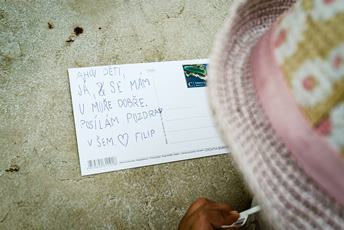 AHOJ DĚTI,
JÁ SE MÁM
U MOŘE DOBŘE.
POSÍLÁM POZDRAV
VŠEM. ♡ FILIP